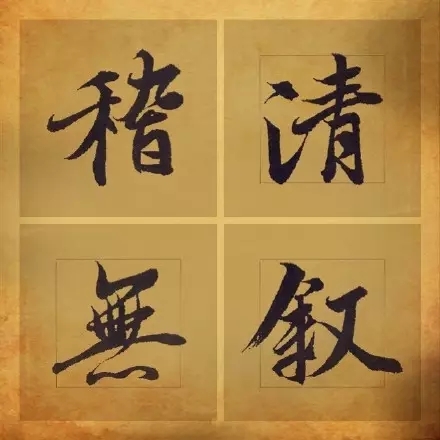 稽清
無叙